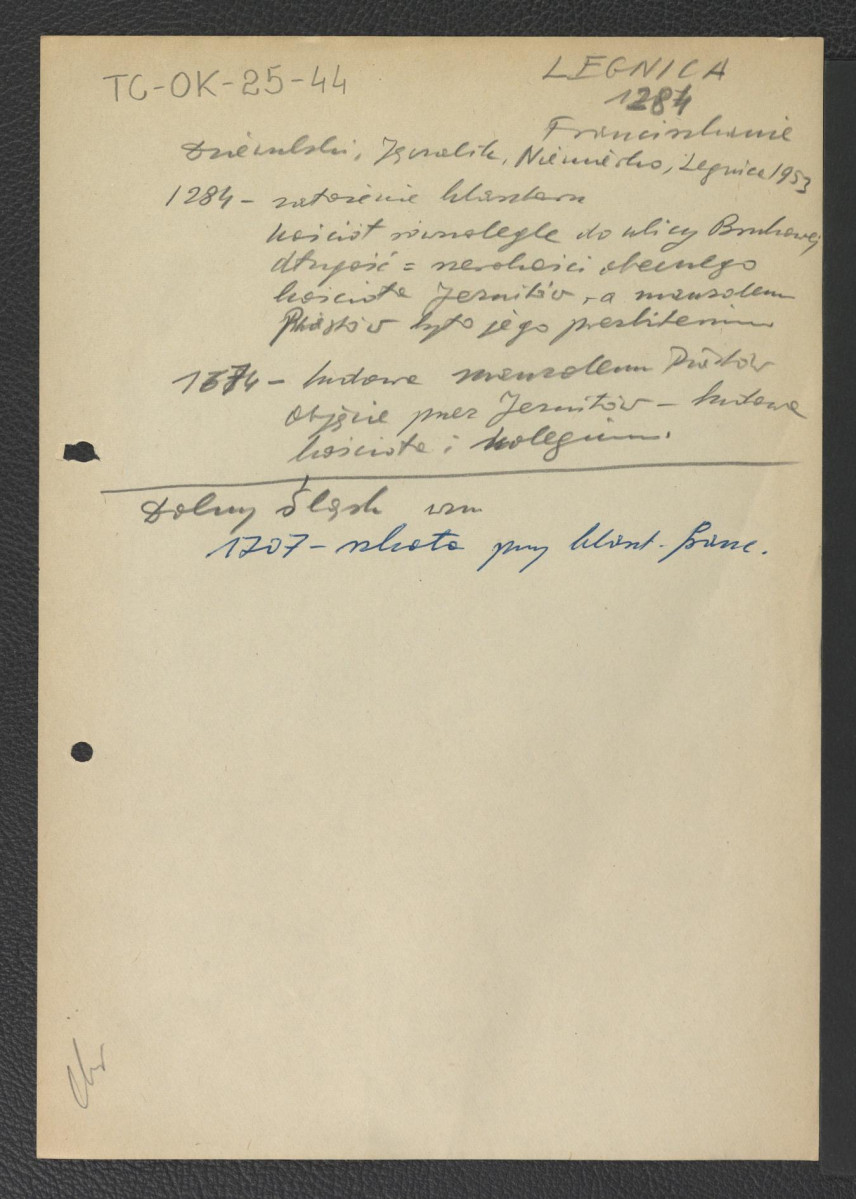 TC-OK-25-44
LEGNICA
1284
Franciszkanie
Dziewulski, Niemierko, Legnica 1953
1284 - założenie klasztoru
kościół równolegle do ulicy
długość = szerokości obecnego
kościoła Jezuitów, a mauzoleum
Piastów było jego prezbiterium
1674 - budowa mauzoleum Piastów
objęcie przez Jezuitów - budowa
kościoła i kolegium.
Dolny Śląsk
1707 - szkoła przy klaszt. franc.